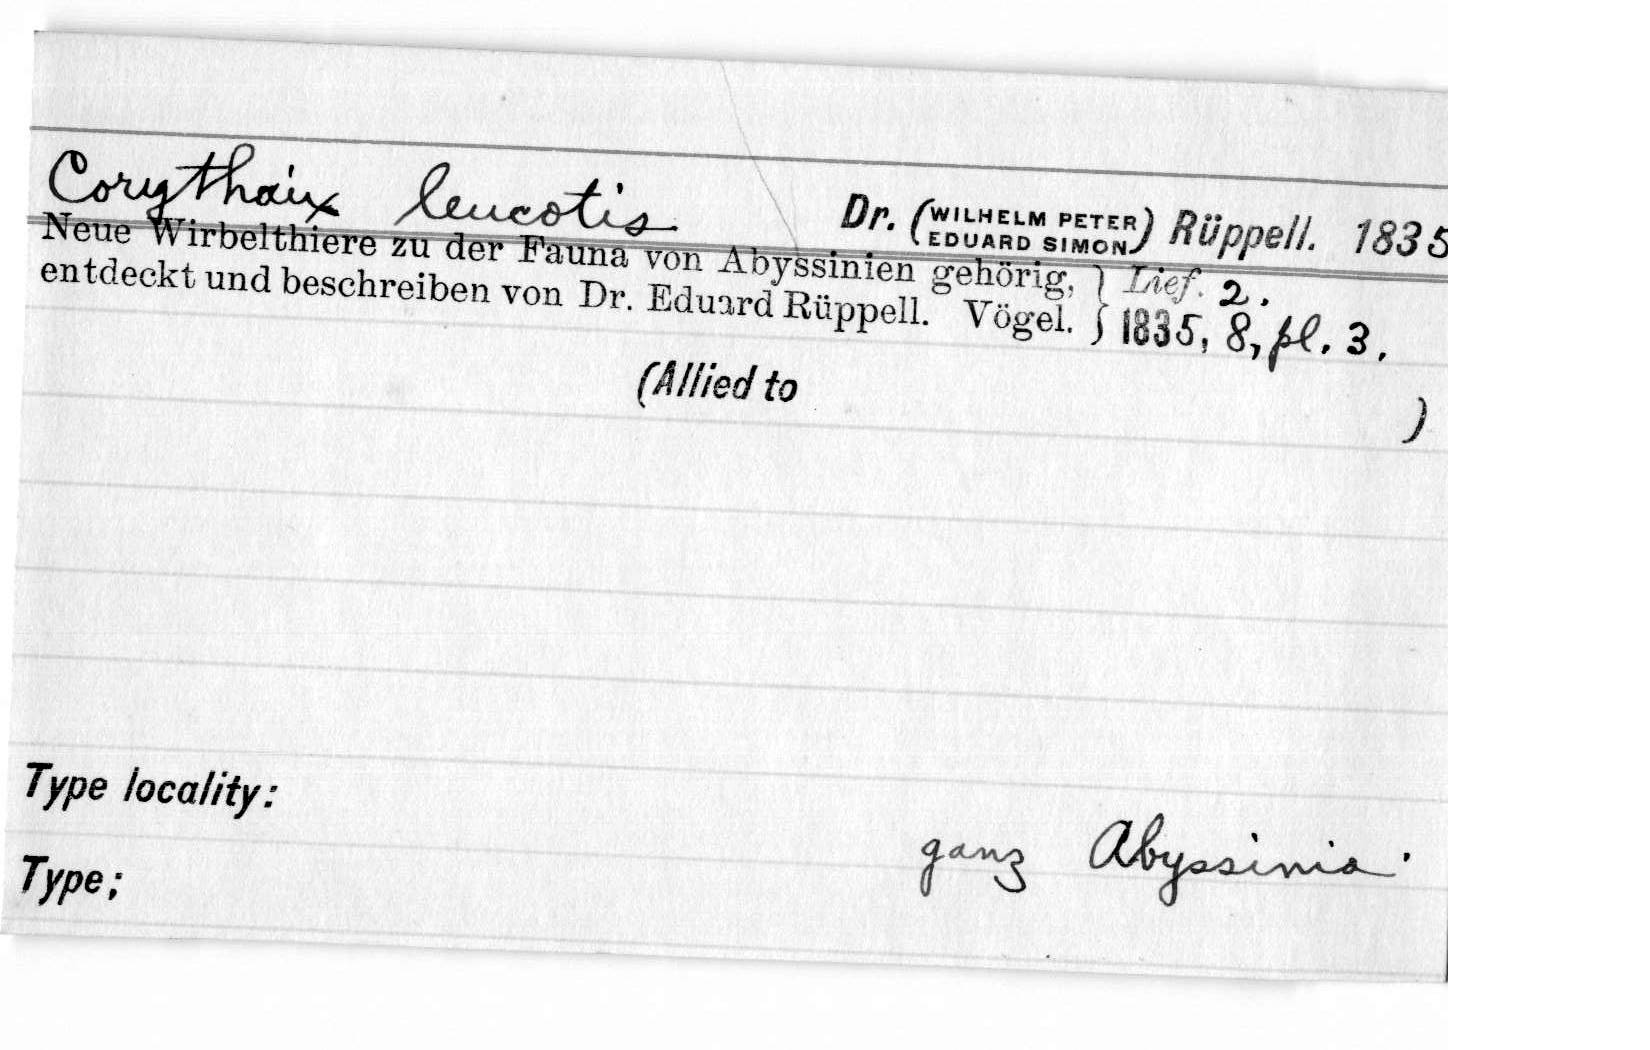 Corythaix leucotis Dr. (WILHELM PETER EDUARD SIMON) Rüppell. 1835
Neue Wirbelthiere zu der Fauna von Abyssinien gehörig, } Lief. 2.
entdeckt und beschreiben von Dr. Eduard Rüppell. Vögel. } 1835, 8, pl. 3.
(Allied to )
Type locality:
ganz Abyssinia.
Type;